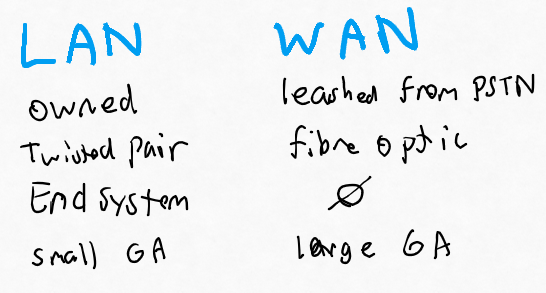 LAN WAN
owned leashed from PSTN
Twisted pair fibre optic
End system Ø
small GA large GA